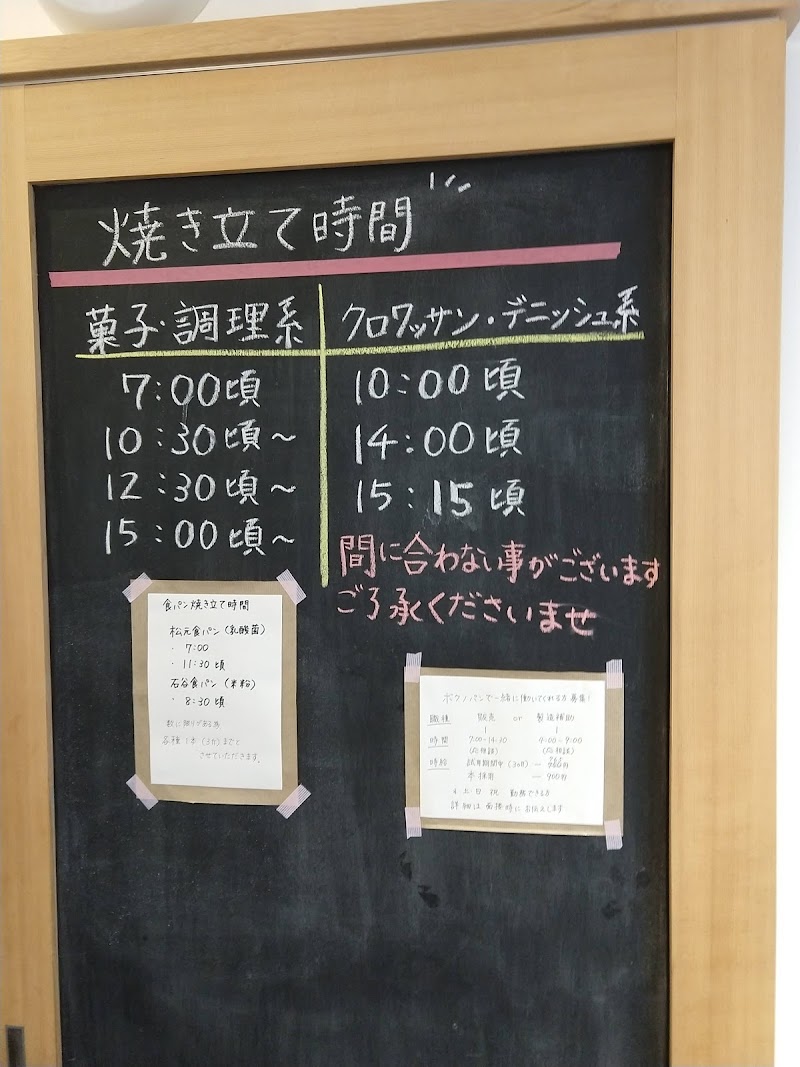 焼き立て時間
菓子・調理系
7:00頃
10:30頃~
12:30頃~
15:00頃~
クロワッサン・デニッシュ系
10:00頃
14:00頃
15:15頃
間に合わない事がございます
ご了承くださいませ
食パン焼き立て時間
松元食パン(乳酸菌)
・7:00
・11:30頃
石谷食パン(米粉)
・8:30頃
数に限りがある為
各種1本(3斤)までと
させていただきます。
ボクノパンで一緒に働いてくれる方募集!
職種 販売 or 製造補助
時間 7:00-14:30 4:00-9:00
(応相談) (応相談)
時給 試用期間中(3ヶ月)ー
本採用 ー900円
土・日・祝 勤務できる方
詳細は面接時にお伝えします